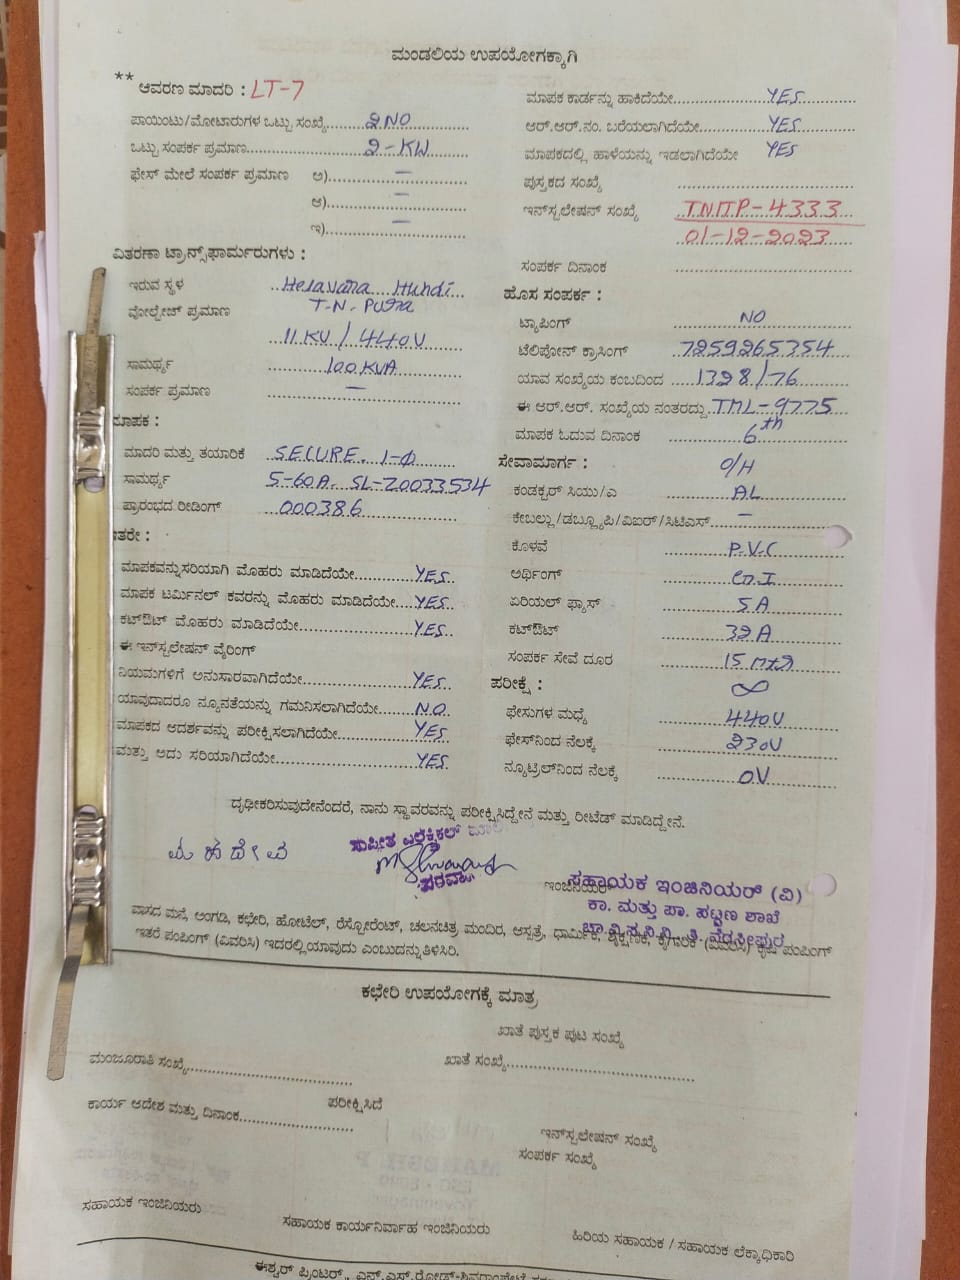 ಮಂಡಲಿಯ ಉಪಯೋಗಕ್ಕಾಗಿ
** ಆವರಣ ಮಾದರಿ : LT-7
ಪಾಯಿಂಟು/ಮೋಟಾರುಗಳ ಒಟ್ಟು ಸಂಖ್ಯೆ........2NO
ಒಟ್ಟು ಸಂಪರ್ಕ ಪ್ರಮಾಣ........2-KW
ಫೇಸ್ ಮೇಲೆ ಸಂಪರ್ಕ ಪ್ರಮಾಣ ಅ)........—
ಆ)........—
ಇ)........—
ವಿತರಣಾ ಟ್ರಾನ್ಸ್‌ಫಾರ್ಮರುಗಳು :
ಇರುವ ಸ್ಥಳ ..Helavara Hundi...
ವೋಲ್ಟೇಜ್ ಪ್ರಮಾಣ T-N. Pura
11 KV / 440V
ಸಾಮರ್ಥ್ಯ ........100 KVA
ಸಂಪರ್ಕ ಪ್ರಮಾಣ ........—
ಮಾಪಕ :
ಮಾದರಿ ಮತ್ತು ತಯಾರಿಕೆ SECURE. 1-Φ
ಸಾಮರ್ಥ್ಯ 5-60A. SL-Z0033534
ಪ್ರಾರಂಭದ ರೀಡಿಂಗ್ 000386
ಇತರೇ :
ಮಾಪಕವನ್ನು ಸರಿಯಾಗಿ ಮೊಹರು ಮಾಡಿದೆಯೇ........YES
ಮಾಪಕ ಟರ್ಮಿನಲ್ ಕವರನ್ನು ಮೊಹರು ಮಾಡಿದೆಯೇ....YES
ಕಟ್‌ಔಟ್ ಮೊಹರು ಮಾಡಿದೆಯೇ........YES
ಈ ಇನ್‌ಸ್ಟಲೇಷನ್ ವೈರಿಂಗ್
ನಿಯಮಗಳಿಗೆ ಅನುಸಾರವಾಗಿದೆಯೇ........YES
ಯಾವುದಾದರೂ ನ್ಯೂನತೆಯನ್ನು ಗಮನಿಸಲಾಗಿದೆಯೇ....NO
ಮಾಪಕದ ಆದರ್ಶವನ್ನು ಪರೀಕ್ಷಿಸಲಾಗಿದೆಯೇ........YES
ಮತ್ತು ಅದು ಸರಿಯಾಗಿದೆಯೇ........YES
ಮಾಪಕ ಕಾರ್ಡನ್ನು ಹಾಕಿದೆಯೇ........YES
ಆರ್.ಆರ್.ನಂ. ಬರೆಯಲಾಗಿದೆಯೇ........YES
ಮಾಪಕದಲ್ಲಿ ಹಾಳೆಯನ್ನು ಇಡಲಾಗಿದೆಯೇ YES
ಪುಸ್ತಕದ ಸಂಖ್ಯೆ ........
ಇನ್‌ಸ್ಟಲೇಷನ್ ಸಂಖ್ಯೆ TNTP-4333
01-12-2023
ಸಂಪರ್ಕ ದಿನಾಂಕ ........
ಹೊಸ ಸಂಪರ್ಕ :
ಟ್ಯಾಪಿಂಗ್ NO
ಟೆಲಿಫೋನ್ ಕ್ರಾಸಿಂಗ್ 7259265354
ಯಾವ ಸಂಖ್ಯೆಯ ಕಂಬದಿಂದ ....1328/76
ಈ ಆರ್.ಆರ್. ಸಂಖ್ಯೆಯ ನಂತರದ್ದು..TML-9775
ಮಾಪಕ ಓದುವ ದಿನಾಂಕ 6th
ಸೇವಾಮಾರ್ಗ : O/H
ಕಂಡಕ್ಟರ್ ಸಿಯು/ಎ AL
ಕೇಬಲ್ಲು/ಡಬ್ಲ್ಯೂಪಿ/ವಿಐಆರ್/ಸಿಟಿಎಸ್ —
ಕೊಳವೆ P.V.C
ಅರ್ಥಿಂಗ್ G.I
ಏರಿಯಲ್ ಫ್ಯೂಸ್ 5A
ಕಟ್‌ಔಟ್ 32A
ಸಂಪರ್ಕ ಸೇವೆ ದೂರ 15 Mtr
ಪರೀಕ್ಷೆ : ∞
ಫೇಸುಗಳ ಮಧ್ಯೆ 440V
ಫೇಸ್‌ನಿಂದ ನೆಲಕ್ಕೆ 230V
ನ್ಯೂಟ್ರಲ್‌ನಿಂದ ನೆಲಕ್ಕೆ 0V
ದೃಢೀಕರಿಸುವುದೇನೆಂದರೆ, ನಾನು ಸ್ಥಾವರವನ್ನು ಪರೀಕ್ಷಿಸಿದ್ದೇನೆ ಮತ್ತು ರೀಟೆಡ್ ಮಾಡಿದ್ದೇನೆ.
ಮಹದೇವ
ಸುಪ್ರೀತ ಎಲೆಕ್ಟ್ರಿಕಲ್
ಇಂಜಿನಿಯರ್
ಸಹಾಯಕ ಇಂಜಿನಿಯರ್ (ವಿ)
ಕಾ. ಮತ್ತು ಪಾ. ಪಟ್ಟಣ ಶಾಖೆ
ಚಾ.ವಿ.ಸ.ನಿ.ನಿ. ತಿ. ನರಸೀಪುರ
ವಾಸದ ಮನೆ, ಅಂಗಡಿ, ಕಛೇರಿ, ಹೋಟೆಲ್, ರೆಸ್ಟೋರೆಂಟ್, ಚಲನಚಿತ್ರ ಮಂದಿರ, ಆಸ್ಪತ್ರೆ, ಧಾರ್ಮಿಕ, ಶೈಕ್ಷಣಿಕ, ಕೈಗಾರಿಕೆ (ವಿವರಿಸಿ) ಕೃಷಿ ಪಂಪಿಂಗ್
ಇತರೆ ಪಂಪಿಂಗ್ (ವಿವರಿಸಿ) ಇದರಲ್ಲಿ ಯಾವುದು ಎಂಬುದನ್ನು ತಿಳಿಸಿರಿ.
ಕಛೇರಿ ಉಪಯೋಗಕ್ಕೆ ಮಾತ್ರ
ಖಾತೆ ಪುಸ್ತಕ ಪುಟ ಸಂಖ್ಯೆ
ಮಂಜೂರಾತಿ ಸಂಖ್ಯೆ........
ಖಾತೆ ಸಂಖ್ಯೆ........
ಕಾರ್ಯ ಆದೇಶ ಮತ್ತು ದಿನಾಂಕ........
ಪರೀಕ್ಷಿಸಿದೆ
ಇನ್‌ಸ್ಟಲೇಷನ್ ಸಂಖ್ಯೆ
ಸಂಪರ್ಕ ಸಂಖ್ಯೆ
ಸಹಾಯಕ ಇಂಜಿನಿಯರು
ಸಹಾಯಕ ಕಾರ್ಯನಿರ್ವಾಹ ಇಂಜಿನಿಯರು
ಹಿರಿಯ ಸಹಾಯಕ / ಸಹಾಯಕ ಲೆಕ್ಕಾಧಿಕಾರಿ